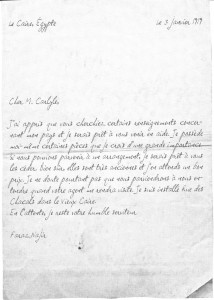 Le Caire, Egypte
Le 3 janvier 1919
Cher M. Carlyle,
J'ai appris que vous cherchiez certains renseignements concer-
nant mon pays et je serais prêt à vous venir en aide. Je possède
moi-même certaines pièces que je crois d'une grande importance
si nous pouvions parvenir à un arrangement, je serais prêt à vous
les céder, bien sûr, elles sont très anciennes et j'en attends un bon
prix. Je ne doute pourtant pas que nous parviendrons à nous en-
tendre quand votre agent me rendra visite. Je suis installé rue des
Chacals dans le Vieux Caire.
En l'attente, je reste votre humble serviteur.
Faraz Najir